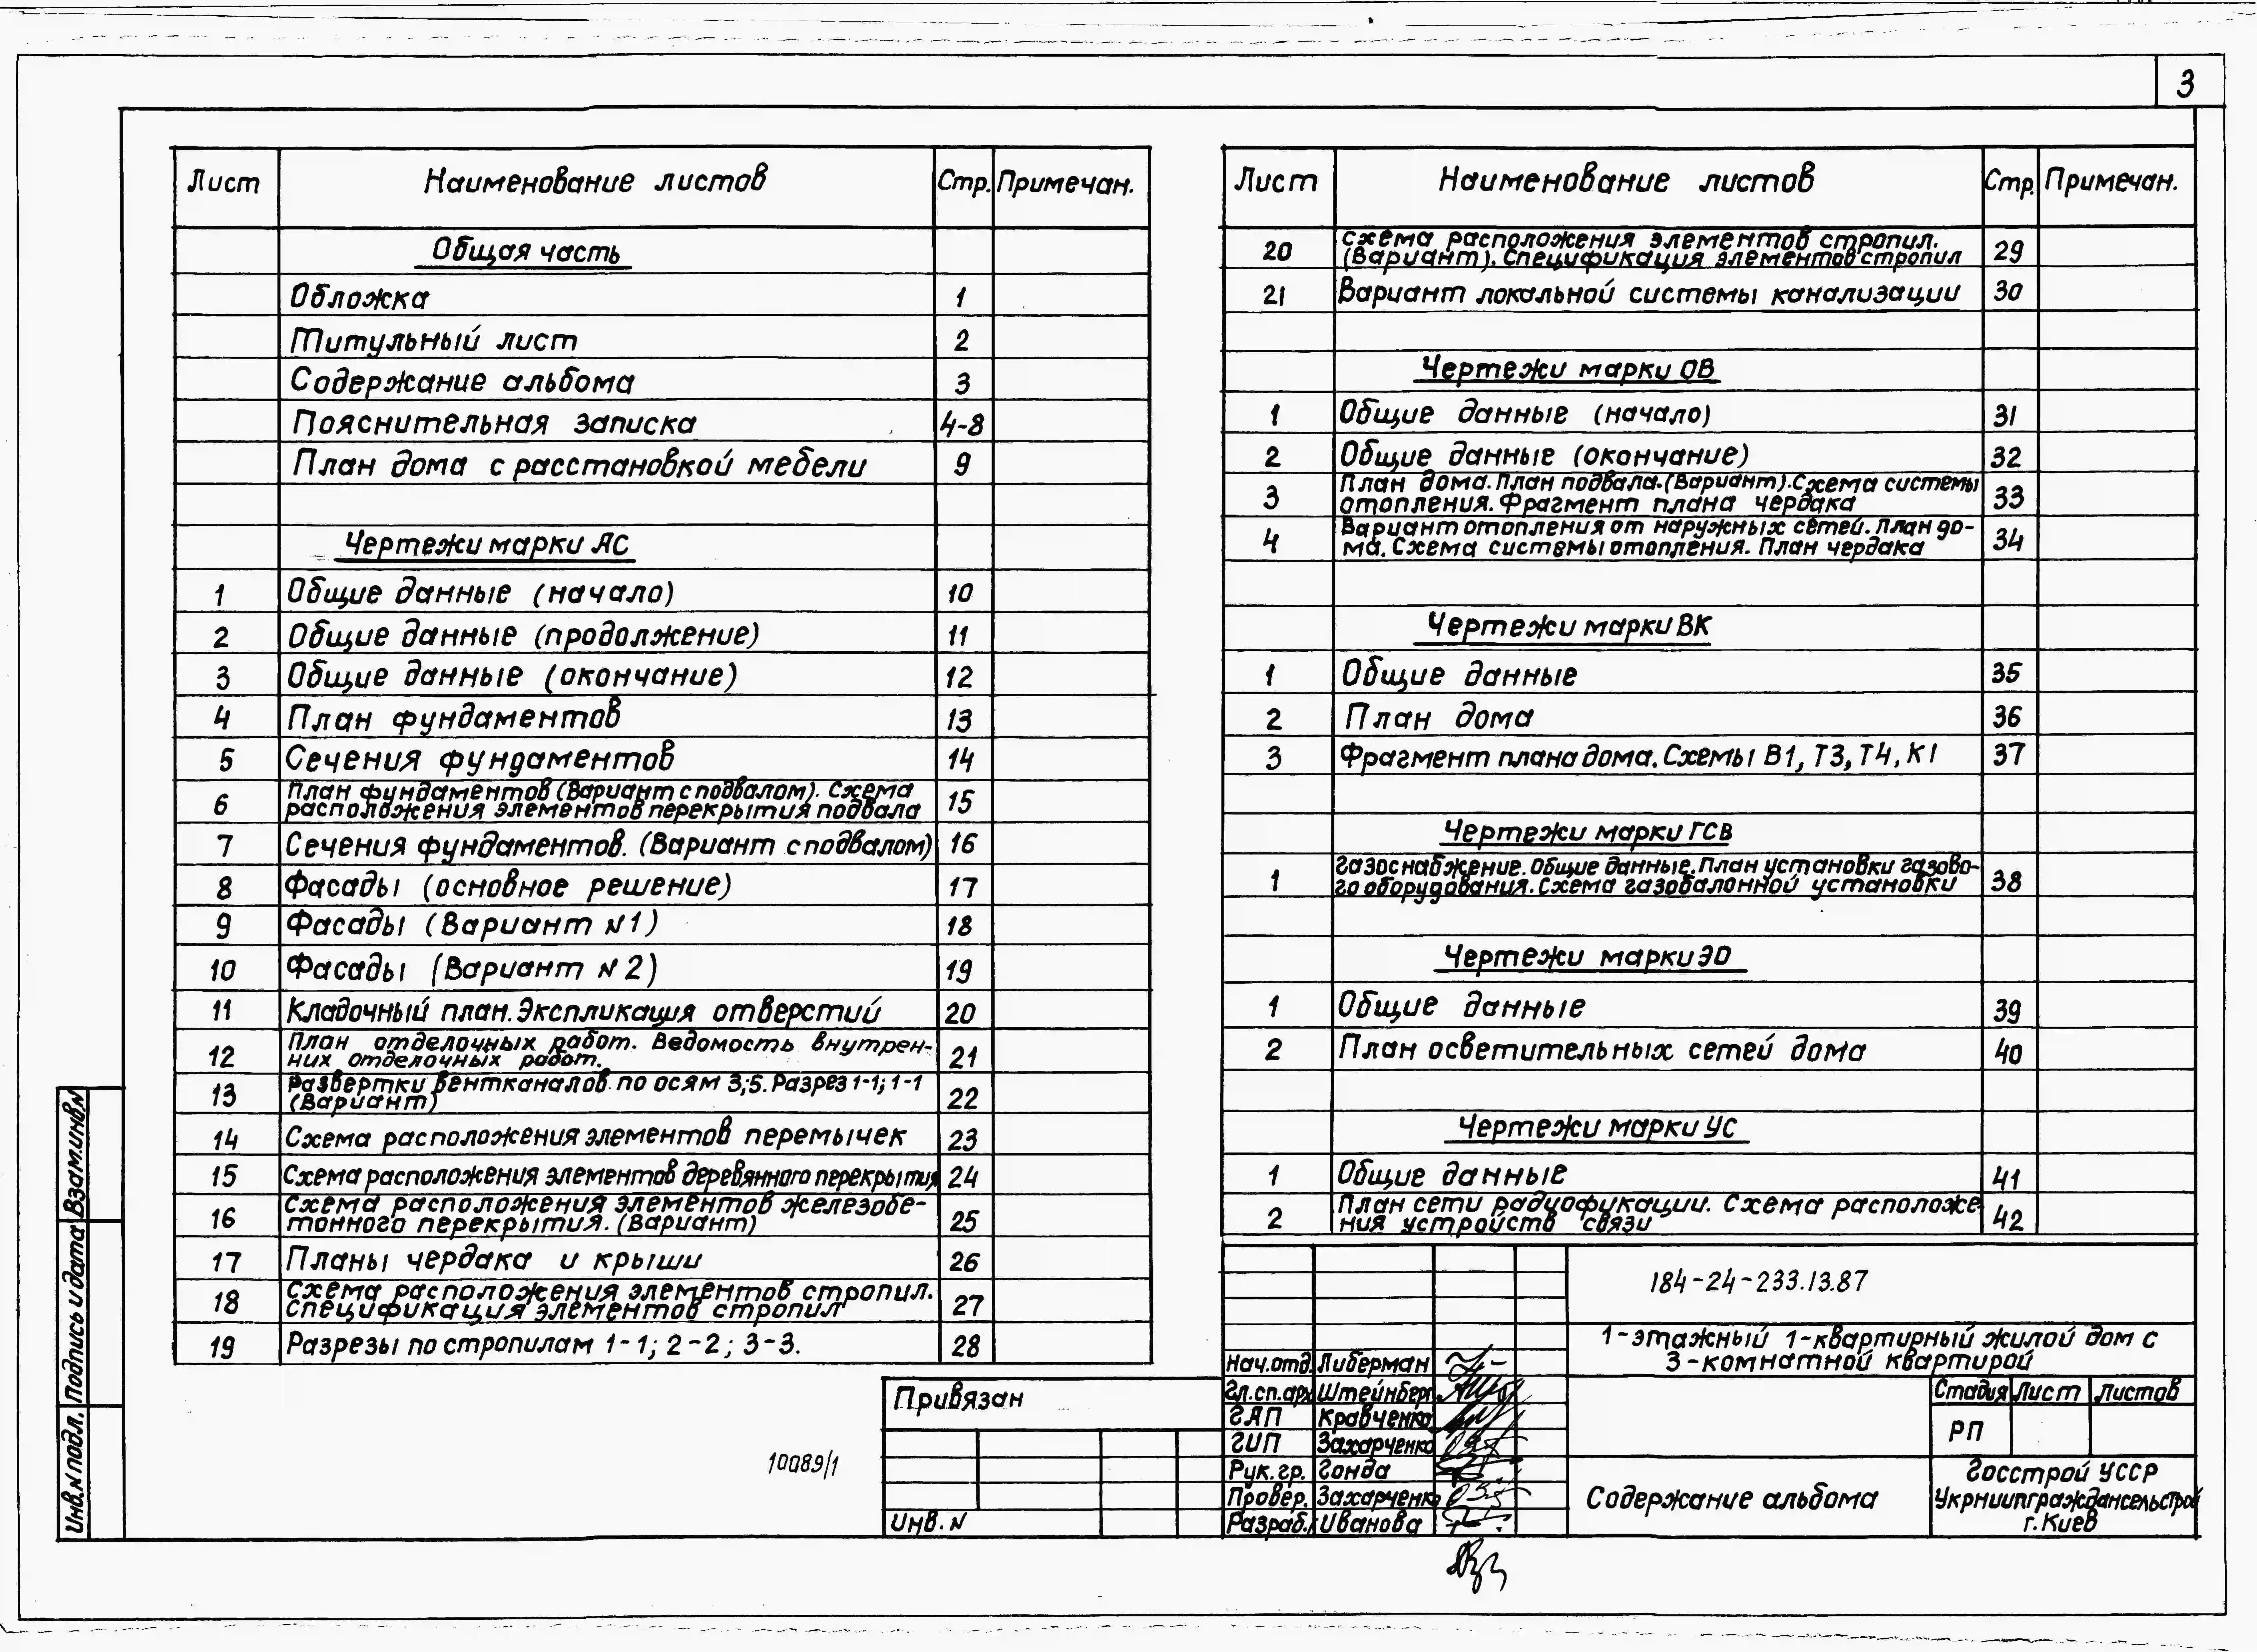 3
Лист Наименование листов Стр. Примечан.
Общая часть
Обложка 1
Титульный лист 2
Содержание альбома 3
Пояснительная записка 4-8
План дома с расстановкой мебели 9
Чертежи марки АС
1 Общие данные (начало) 10
2 Общие данные (продолжение) 11
3 Общие данные (окончание) 12
4 План фундаментов 13
5 Сечения фундаментов 14
6 План фундаментов (Вариант с подвалом). Схема
расположения элементов перекрытия подвала 15
7 Сечения фундаментов. (Вариант с подвалом) 16
8 Фасады (основное решение) 17
9 Фасады (Вариант №1) 18
10 Фасады (Вариант №2) 19
11 Кладочный план. Экспликация отверстий 20
12 План отделочных работ. Ведомость внутрен-
них отделочных работ. 21
13 Развертки вентканалов по осям 3;5. Разрез 1-1; 1-1
(Вариант) 22
14 Схема расположения элементов перемычек 23
15 Схема расположения элементов деревянного перекрытия 24
16 Схема расположения элементов железобе-
тонного перекрытия. (Вариант) 25
17 Планы чердака и крыши 26
18 Схема расположения элементов стропил.
Спецификация элементов стропил 27
19 Разрезы по стропилам 1-1; 2-2; 3-3. 28
Лист Наименование листов Стр. Примечан.
20 Схема расположения элементов стропил.
(Вариант). Спецификация элементов стропил 29
21 Вариант локальной системы канализации 30
Чертежи марки ОВ
1 Общие данные (начало) 31
2 Общие данные (окончание) 32
3 План дома. План подвала. (Вариант). Схема системы
отопления. Фрагмент плана чердака 33
4 Вариант отопления от наружных сетей. План до-
ма. Схема системы отопления. План чердака 34
Чертежи марки ВК
1 Общие данные 35
2 План дома 36
3 Фрагмент плана дома. Схемы В1, Т3, Т4, К1 37
Чертежи марки ГСВ
1 Газоснабжение. Общие данные. План установки газово-
го оборудования. Схема газобалонной установки 38
Чертежи марки ЭО
1 Общие данные 39
2 План осветительных сетей дома 40
Чертежи марки УС
1 Общие данные 41
2 План сети радиофикации. Схема расположе-
ния устройств связи 42
184-24-233.13.87
1-этажный 1-квартирный жилой дом с
3-комнатной квартирой
Нач.отд. Либерман
Гл.сп.арх Штейнберг
ГАП Кравченко
ГИП Захарченко
Рук.гр. Гонда
Провер. Захарченко
Разраб. Иванова
Стадия Лист Листов
РП
Содержание альбома
Госстрой УССР
Укрниипграждансельстрой
г. Киев
Привязан
Инв. №
10089/1
Взам.инв.№
Подпись и дата
Инв.№ подл.